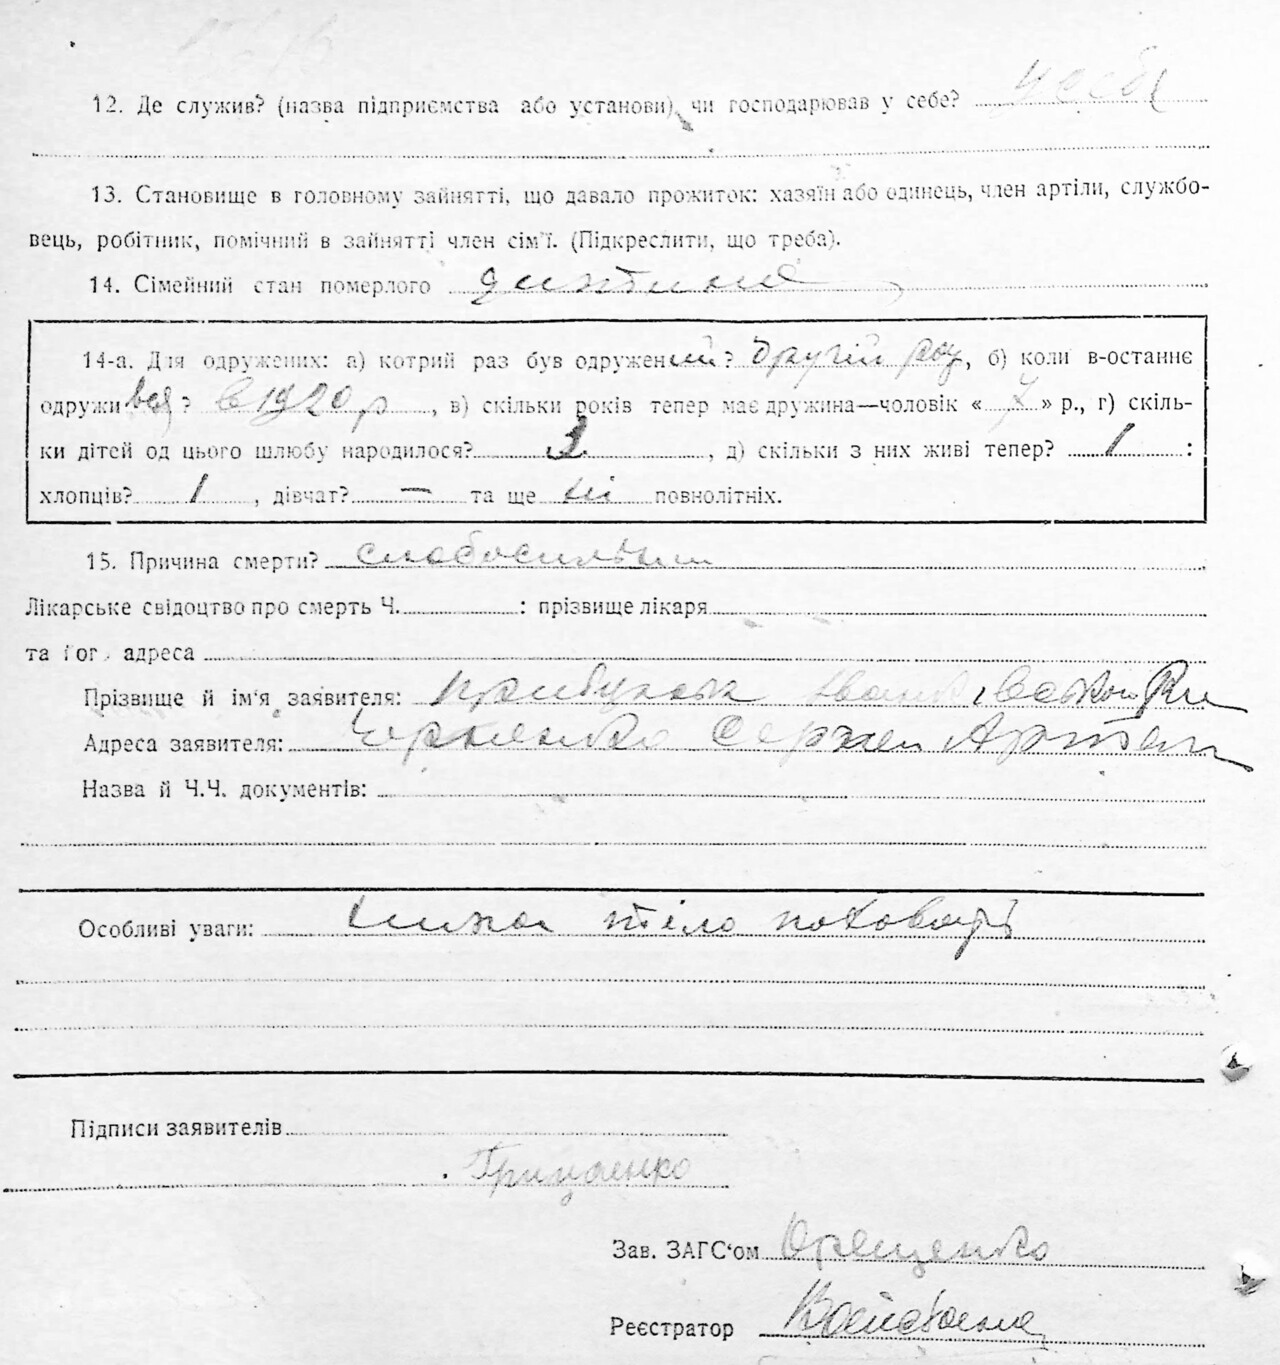 12. Де служив? (назва підприємства або установи), чи господарював у себе? у себе
13. Становище в головному зайнятті, що давало прожиток: хазяїн або одинець, член артіли, службо-
вець, робітник, помічний в зайнятті член сім'ї. (Підкреслити, що треба).
14. Сімейний стан померлого дитина
14-а. Для одружених: а) котрий раз був одружений? другий раз, б) коли в-останнє
одружився? в 1920 р, в) скільки років тепер має дружина—чоловік « » р., г) скіль-
ки дітей од цього шлюбу народилося? 3, д) скільки з них живі тепер? 1 :
хлопців? 1, дівчат? — та ще повнолітніх.
15. Причина смерти?
Лікарське свідоцтво про смерть Ч. : прізвище лікаря
та адреса
Прізвище й ім'я заявителя:
Адреса заявителя: Сергей
Назва й Ч.Ч. документів:
Особливі уваги: тіло поховать
Підписи заявителів
Гриценко
Зав. ЗАГС'ом Орещенко
Реєстратор